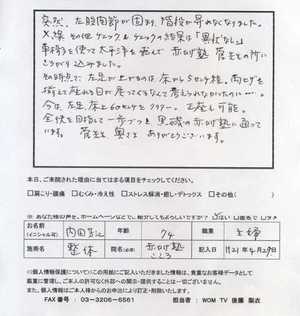 突然、左股関節が固まり、階段が昇れなくなりました。
X線その他チェックもチェックの結果は「異状なし」
車椅子を使って太平洋を越えて赤ひげ塾 菅先生の所に
ころがり込みました。
その時点で左足が上がるのは床から5センチ程、両ヒザを
揃えて座れる日が戻ってくるなんて考えられなかったのに…。
今は、左足、床上60センチをクリアー。正座も可能。
全快を目指して一歩づつ、黒磯の赤ひげ塾に通って
います。菅先生、奥さま ありがとうございます。
本日、ご来院された理由に当てはまる項目をチェックしてください。
□肩こり・腰痛 □むくみ・冷え性 □ストレス解消・癒し・デトックス □その他( )
※あなた様の声を、ホームページなどで、紹介してもよろしいですか?
お名前
(イニシャル可)
年齢 74 職業 主婦
施術名 整体 院名(必須) 赤ひげ塾
こころ
記入日
◎個人情報保護について◎この用紙にご記入いただきました情報は、貴重なお客様データとして
厳重に管理し、ご本人の許可なく外部への開示・提供することは一切ございません。
また、個人情報に関しましてはご本人様からのお申出により訂正・削除いたします。
FAX番号 : 03-3206-6561 担当者 : WOM TV 後藤 梨衣